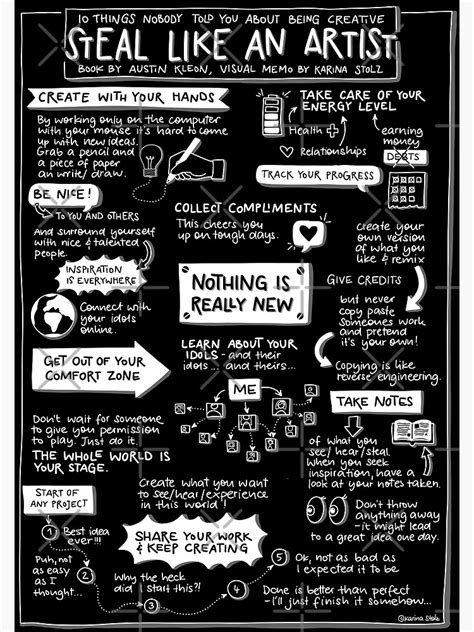 10 THINGS NOBODY TOLD YOU ABOUT BEING CREATIVE
STEAL LIKE AN ARTIST
BOOK BY AUSTIN KLEON, VISUAL MEMO BY KARINA STOLZ
CREATE WITH YOUR HANDS
By working only on the computer
with your mouse it's hard to come
up with new ideas.
Grab a pencil and
a piece of paper
an write/draw.
TAKE CARE OF YOUR
ENERGY LEVEL
Health +
Relationships
earning
money
DEBTS
TRACK YOUR PROGRESS
BE NICE!
TO YOU AND OTHERS
And surround yourself
with nice & talented
people.
INSPIRATION
IS EVERYWHERE
Connect with
your idols
online.
COLLECT COMPLIMENTS
This cheers you
up on tough days.
NOTHING IS
REALLY NEW
create your
own version
of what you
like & remix
GIVE CREDITS
but never
copy paste
someones work
and pretend
it's your own!
Copying is like
reverse engineering.
GET OUT OF YOUR
COMFORT ZONE
LEARN ABOUT YOUR
IDOLS - and their
idols... and their...
ME
TAKE NOTES
of what you
see/hear/steal.
When you seek
inspiration, have a
look at your notes taken.
Don't wait for someone
to give you permission
to play. Just do it.
THE WHOLE WORLD IS
YOUR STAGE.
Create what you want
to see/hear/experience
in this world!
Don't throw
anything away
- it might lead
to a great idea one day.
START OF
ANY PROJECT
1 Best idea
ever!!!
Puh, not
as easy
as I
thought...
2
Why the heck
did I start this?!
3
SHARE YOUR WORK
& KEEP CREATING
4
Done is better than perfect
- I'll just finish it somehow...
5 Ok, not as bad as
I expected it to be
@karina stolz